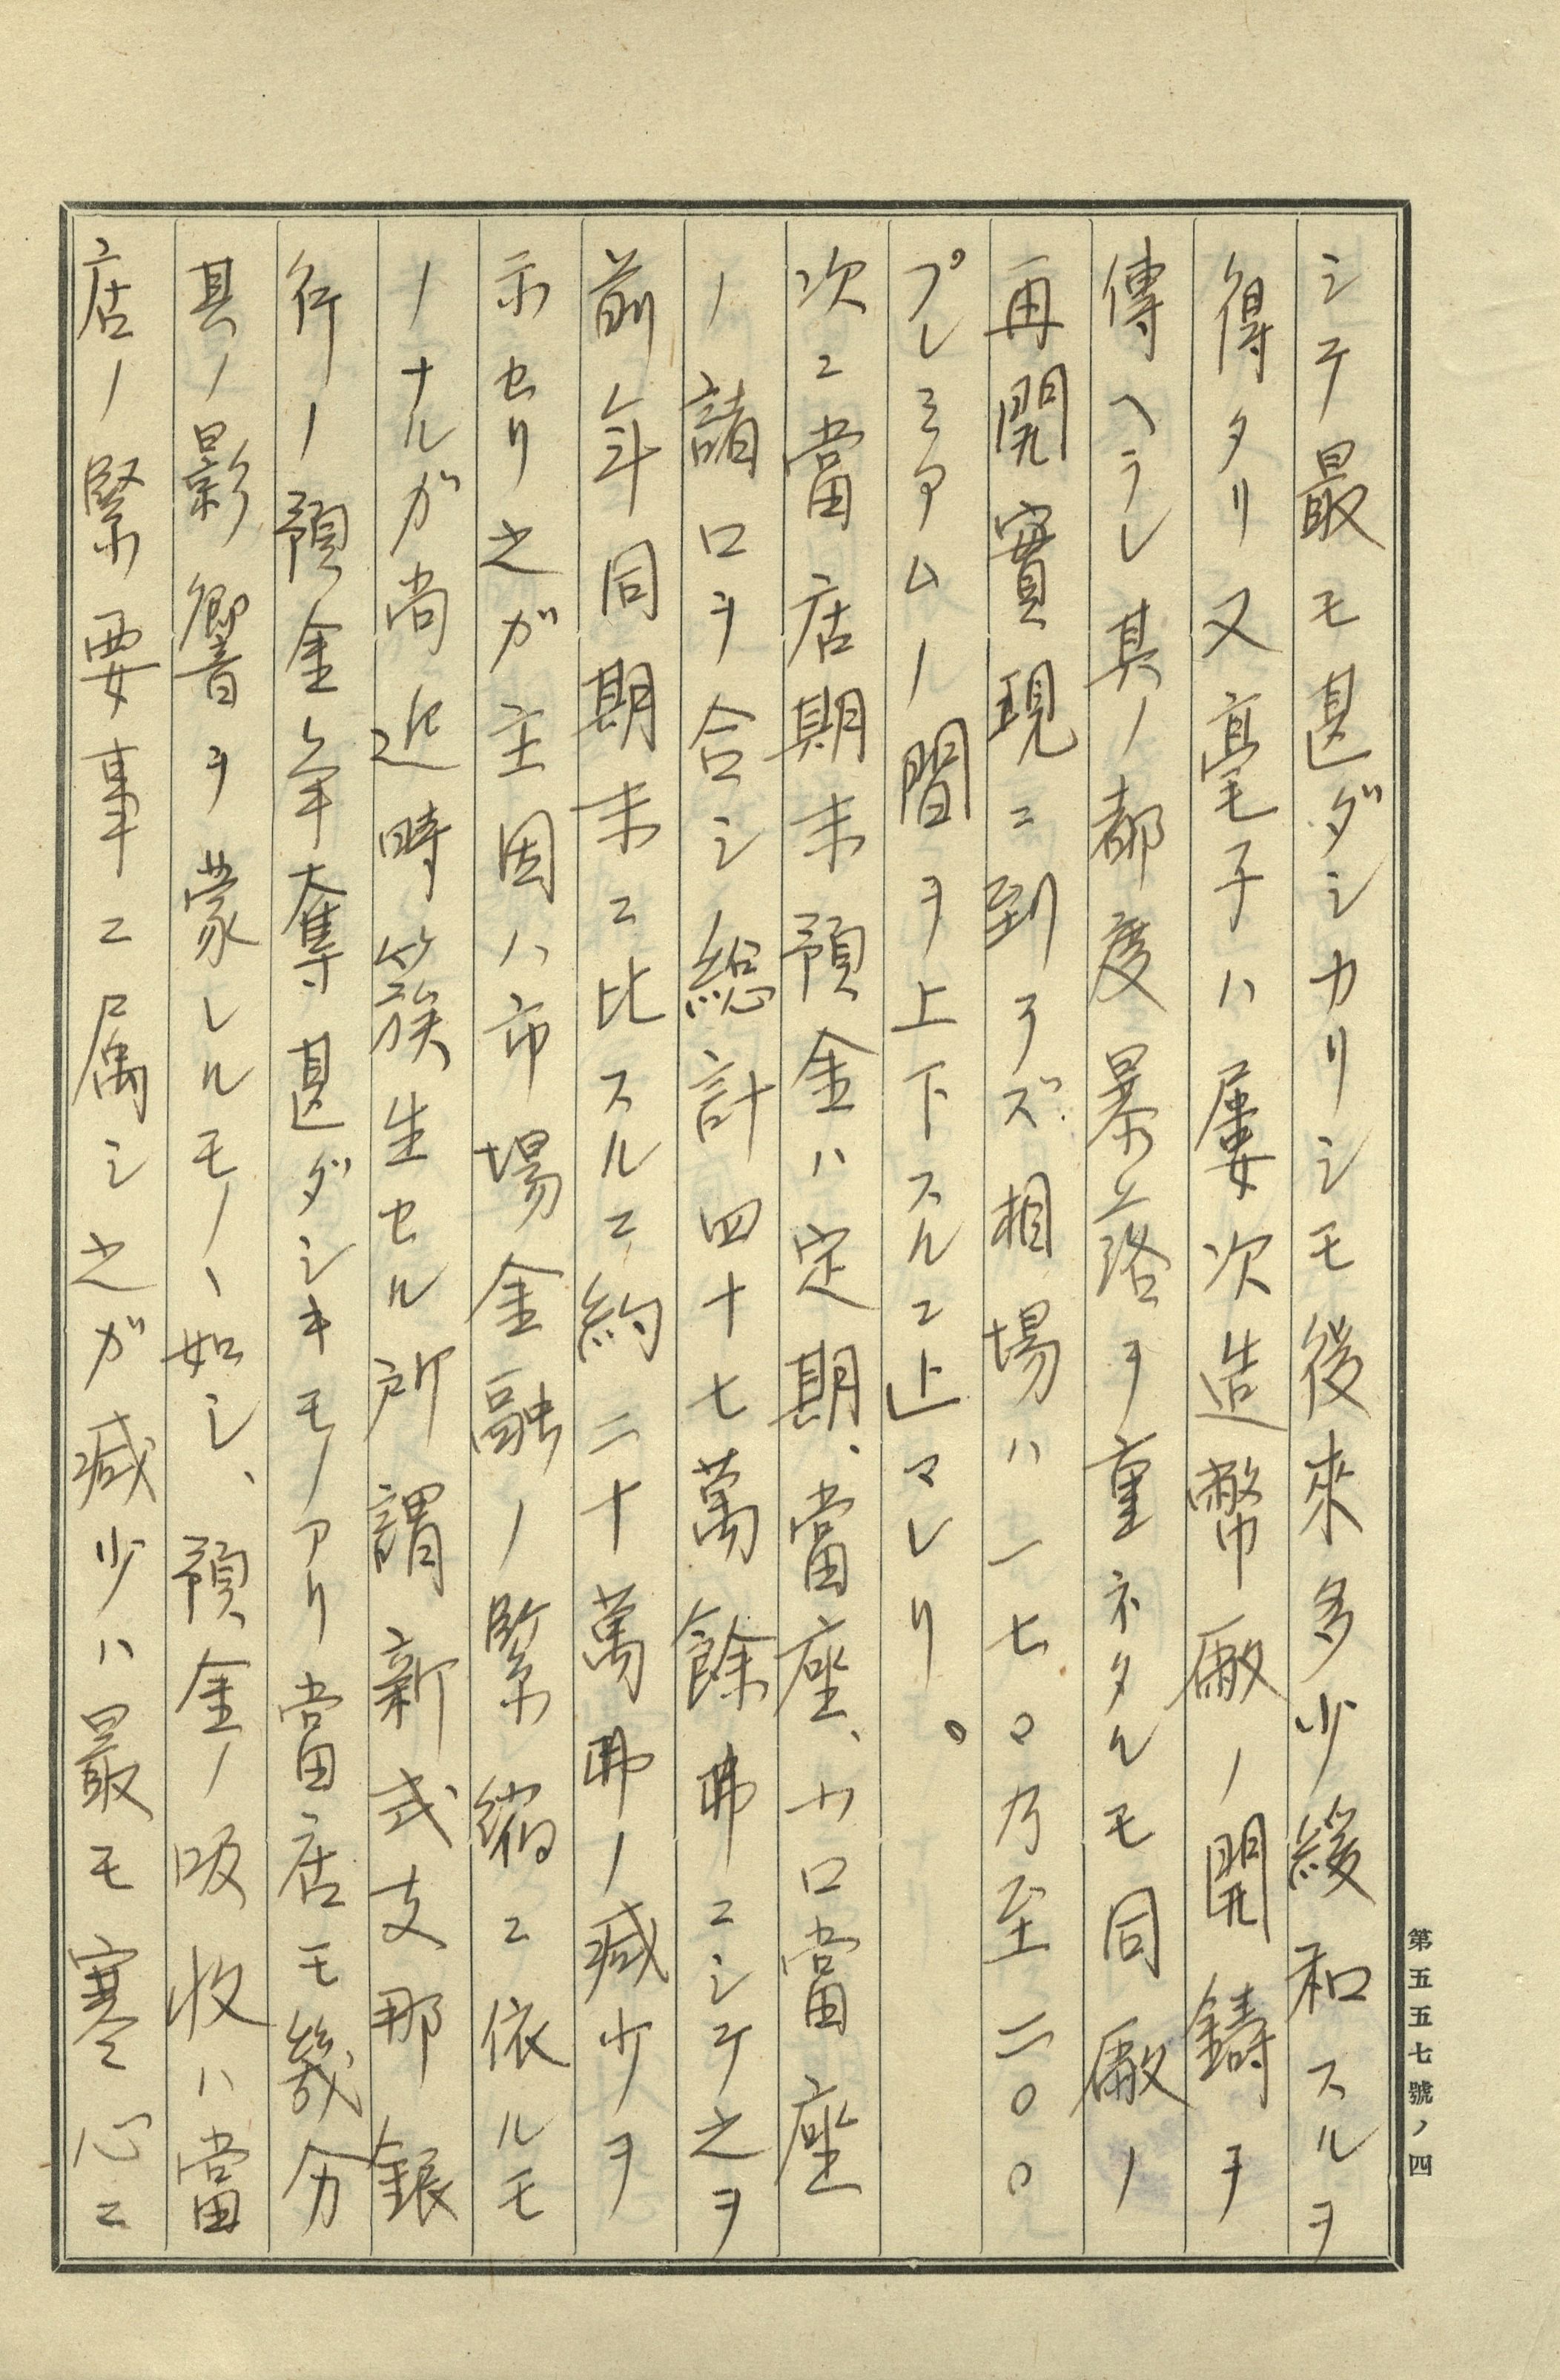 シテ最モ甚ダシカリシモ後來多少緩和スルヲ
得タリ又毫子ハ屢次造幣廠ノ開鑄ヲ
傳ヘラレ其ノ都度暴落ヲ重ネタルモ同廠ノ
再開實現ニ到ラズ相場ハ一七〇乃至二〇〇
プレミアムノ間ヲ上下スルニ止マレリ。
次ニ當店期末預金ハ定期、當座、小口當座
ノ諸口ヲ合シ總計四十七萬餘弗ニシテ之ヲ
前年同期末ニ比スルニ約二十萬弗ノ減少ヲ
示セリ之ガ主因ハ市場金融ノ緊縮ニ依ルモ
ノナルガ尚近時簇生セル所謂新式支那銀
行ノ預金爭奪甚ダシキモノアリ當店モ幾分
其ノ影響ヲ蒙レルモノヽ如シ、預金ノ吸收ハ當
店ノ緊要事ニ属シ之ガ減少ハ最モ寒心ニ
第五五七號ノ四